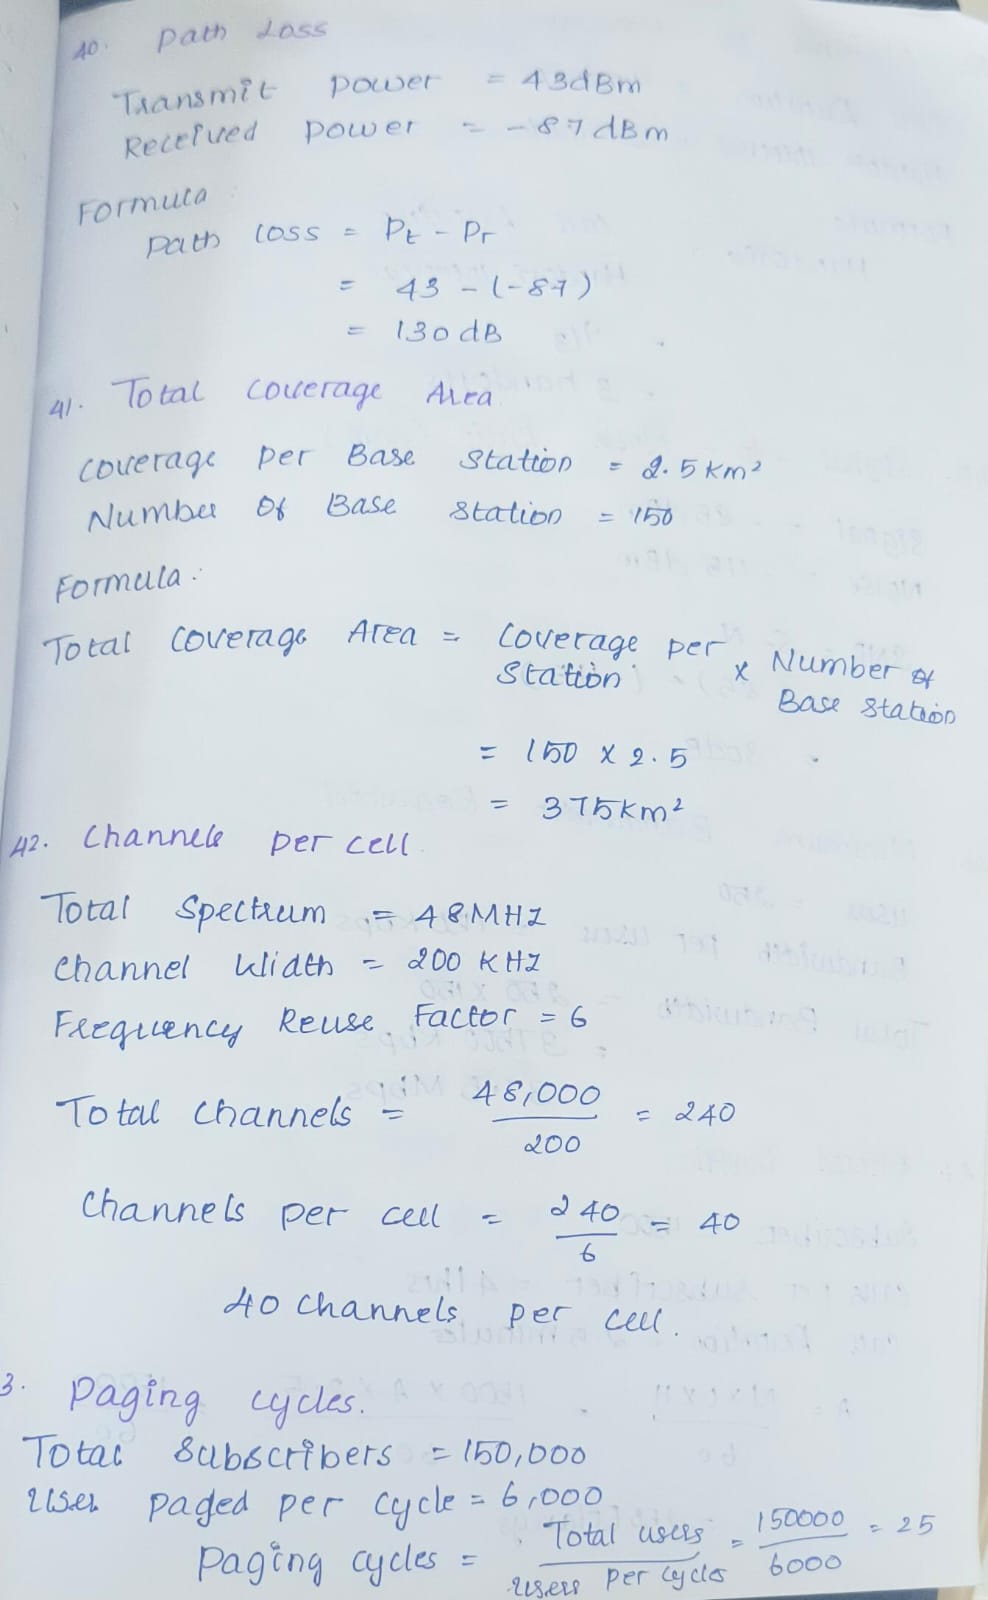 40. Path Loss
Transmit Power = 43dBm
Received Power = -87dBm
Formula
Path loss = Pt - Pr
= 43 - (-87)
= 130 dB
41. Total Coverage Area
Coverage per Base Station = 2.5 km²
Number Of Base Station = 150
Formula:
Total Coverage Area = Coverage per Station x Number of Base station
= 150 x 2.5
= 375km²
42. Channels per cell
Total Spectrum = 48MHZ
Channel Width = 200 KHZ
Frequency Reuse Factor = 6
Total Channels = 48,000 / 200 = 240
Channels per cell = 240 / 6 = 40
40 channels per cell.
3. Paging cycles.
Total Subscribers = 150,000
User paged per cycle = 6,000
Paging cycles = Total users / users per cycles = 150000 / 6000 = 25